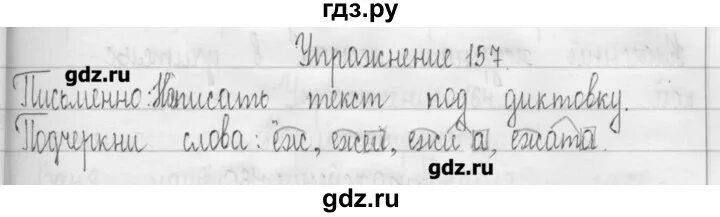 гдз.ру
Упражнение 157
gdz.ru
Письменно: Написать текст под диктовку.
Подчеркни слова: ёж, ежи, ежиха, ежата.
gdz.ru
gdz.ru